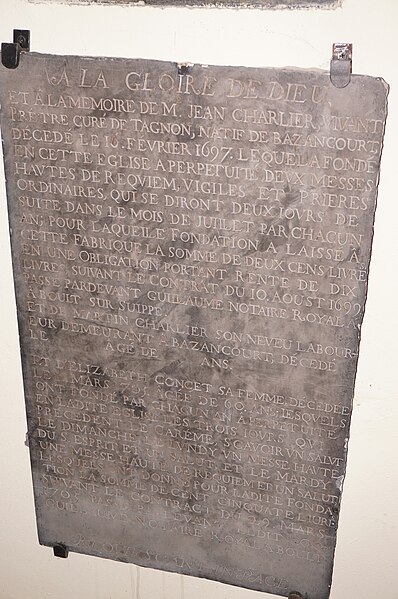 A LA GLOIRE DE DIEU
ET A LA MEMOIRE DE M. JEAN CHARLIER VIVANT
PRETRE CURÉ DE TAGNON, NATIF DE BAZANCOURT
DÉCEDÉ LE 16. FEVRIER 1697. LEQUEL A FONDÉ
EN CETTE EGLISE A PERPETUITÉ DEUX MESSES
HAVTES DE REQVIEM, VIGILES ET PRIERES
ORDINAIRES, QUI SE DIRONT DEUX IOVRS DE
SUITE DANS LE MOIS DE JUILET PAR CHACUN
AN; POUR LAQUEILE FONDATION A LAISSÉ A
CETTE FABRIQUE LA SOMME DE DEUX CENS LIVRE
EN UNE OBLIGATION PORTANT RENTE DE DIX
LIVRES SUIVANT LE CONTRAT DU 10. AOUST 1699
PASSÉ PARDEVANT GUILLAUME NOTAIRE ROYAL A
BOUIT SUR SUIPPE
ET DE MARTIN CHARLIER SON NEVEU LABOUR-
EUR DEMEURANT A BAZANCOURT, DECEDÉ
LE AGÉ DE ANS.
ET ELIZABETH CONCET SA FEMME DÉCEDÉE
MARS AGÉE DE 60 ANS; LESQVELS
ONT FONDÉ PAR CHACUN AN A PERPETUITÉ
LES TROIS IOVRS QVI
PRECEDENT LE CARÊME, SCAVOIR VN SALVT
LE DIMANCHE, LE LVNDY VN MESSE HAVTE
DU S. ESPRIT ET VN SALVT ET LE MARDY
UNE MESSE HAUTE DE REQVIEM ET UN SALUT
DONNÉ POUR LADITE FONDA
LA SOMME DE CENT CINQUATE LIURE
SUIVANT LE CONTRACT DU 29. MARS
1703
NOTAIRE ROYAL A BOULT